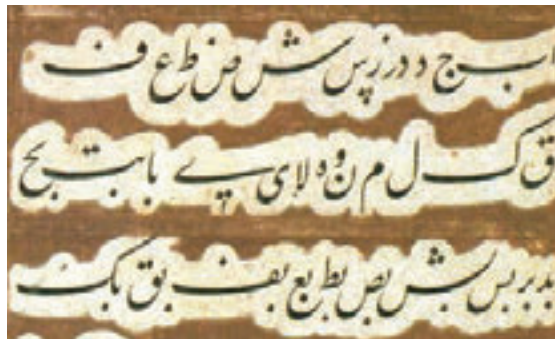 ا ب ج د د ر ز س ش ص ط ع ف
ق ک ل م ن و ه لا ی ے با بت بج
بد بر بس بش بص بط بع بف بق بک